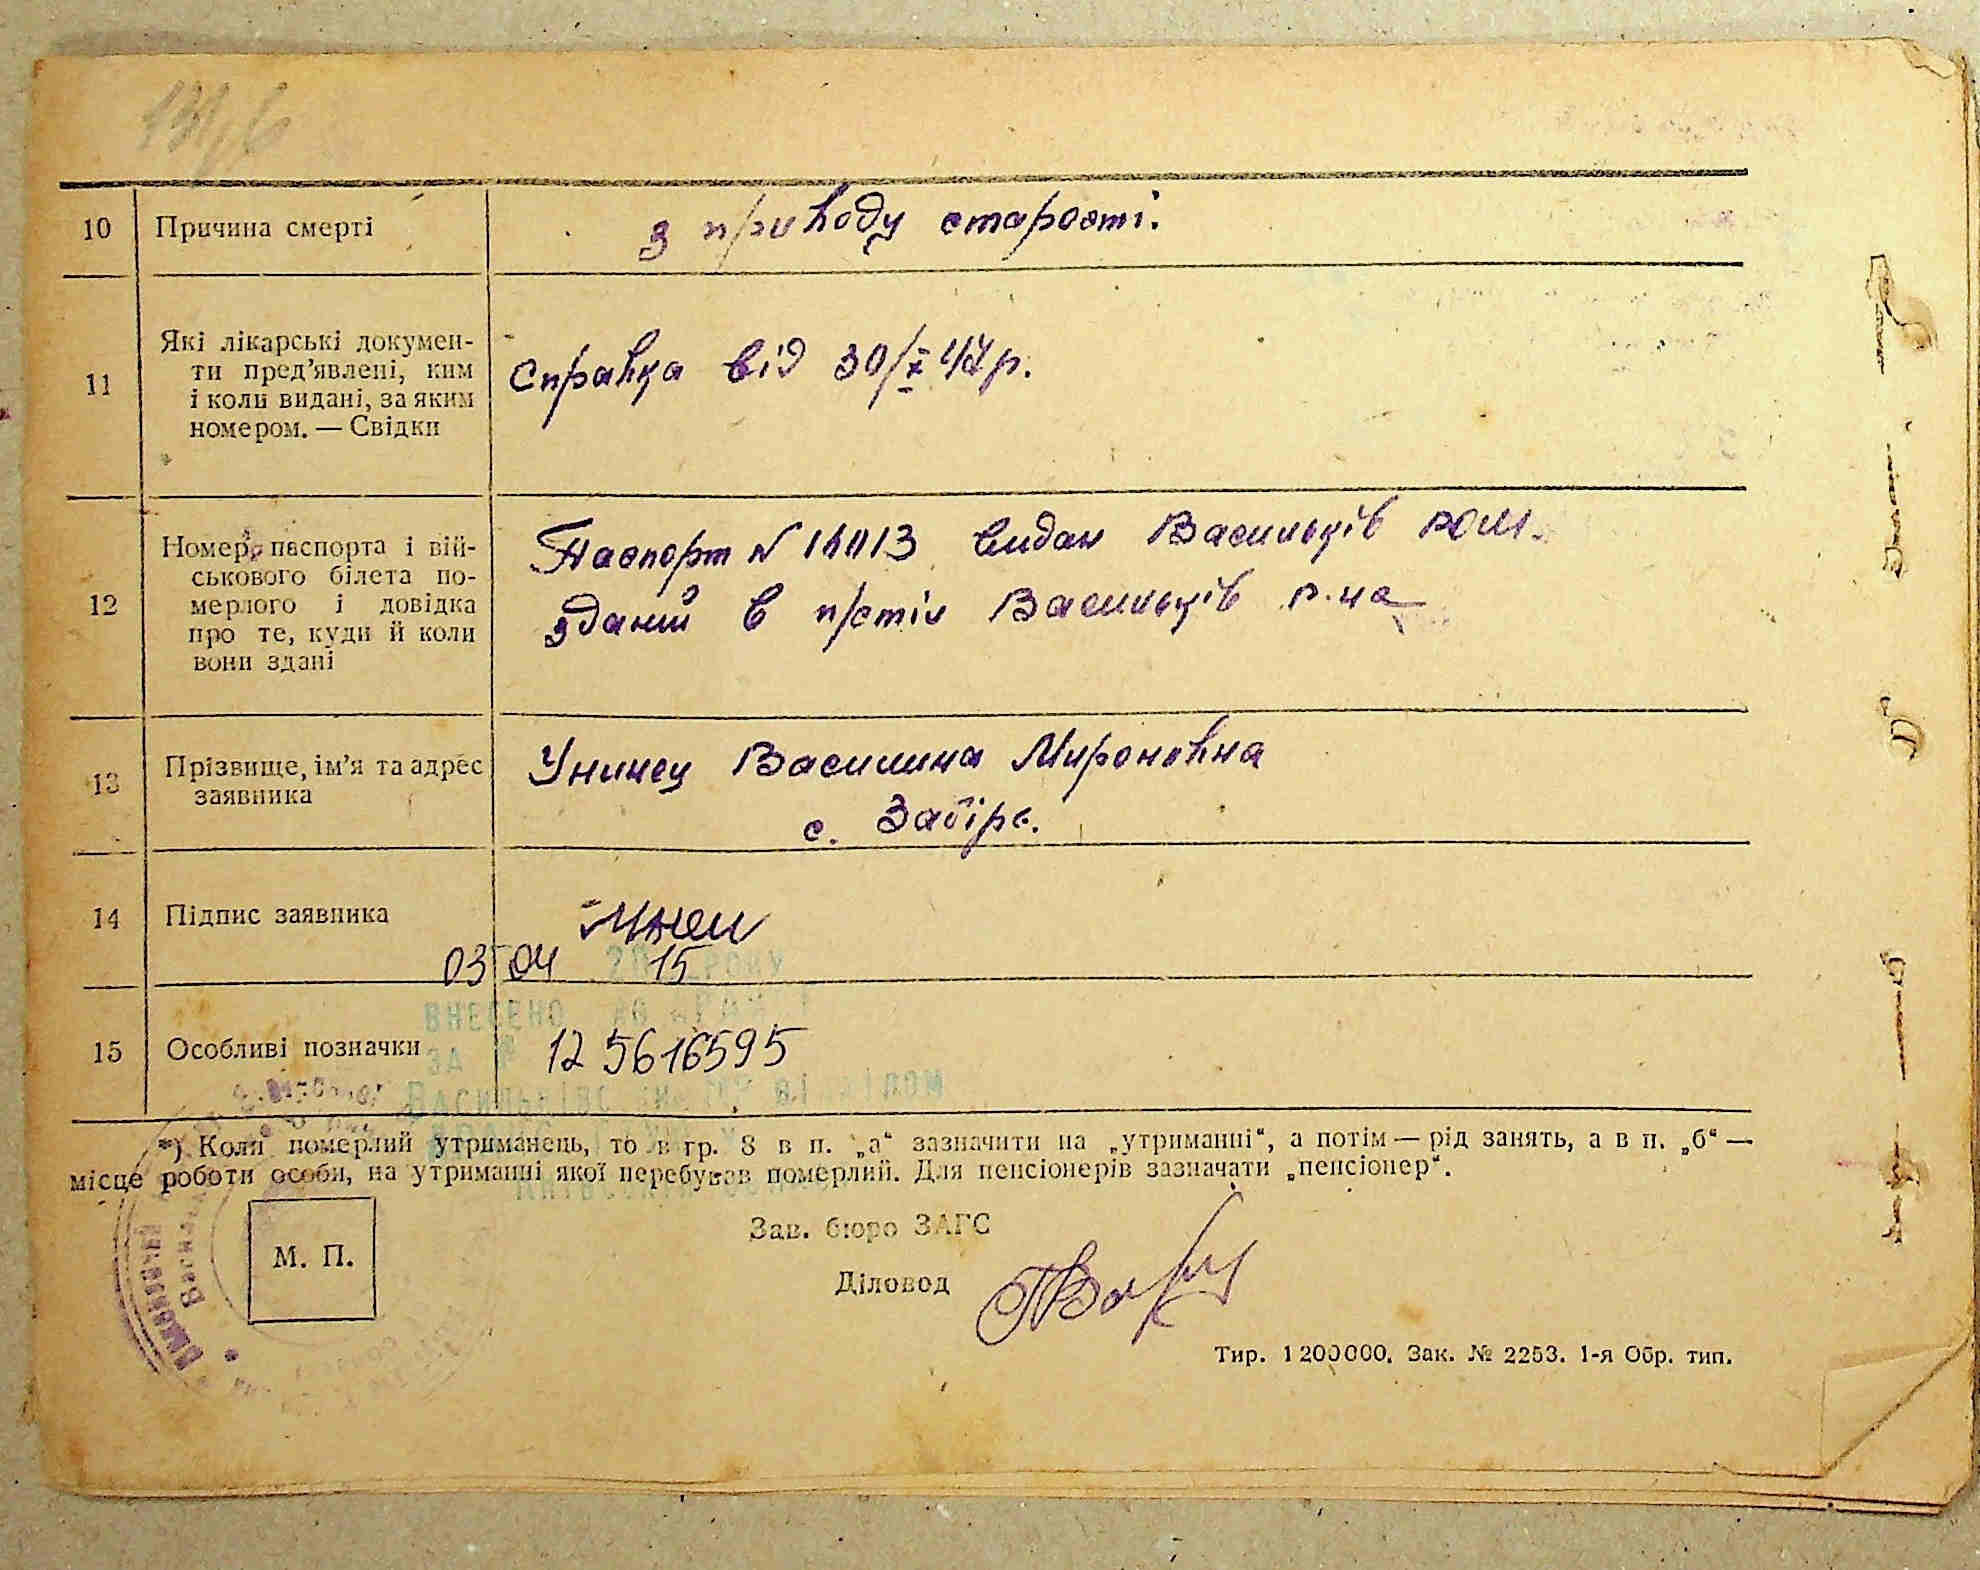 10 Причина смерті з приводу старости.
11 Які лікарські докумен-
ти пред’явлені, ким
і коли видані, за яким
номером. — Свідки
Справка від 30/X 47 р.
12 Номер паспорта і вій-
ськового білета по-
мерлого і довідка
про те, куди й коли
вони здані
Паспорт N видан Васильків
зданий в п/стіл Васильків р-на
13 Прізвище, ім’я та адрес
заявника
Василина Мироновна
с. Забірє.
14 Підпис заявника
03 04 2015 РОКУ
ВНЕСЕНО ДО
15 Особливі позначки
ЗА № 12 5616595
*) Коли померлий утриманець, то в гр. 8 в п. „а“ зазначити на „утриманні“, а потім — рід занять, а в п. „б“ —
місце роботи особи, на утриманні якої перебував померлий. Для пенсіонерів зазначати „пенсіонер“.
М. П.
Зав. бюро ЗАГС
Діловод
Тир. 1200000. Зак. № 2253. 1-я Обр. тип.